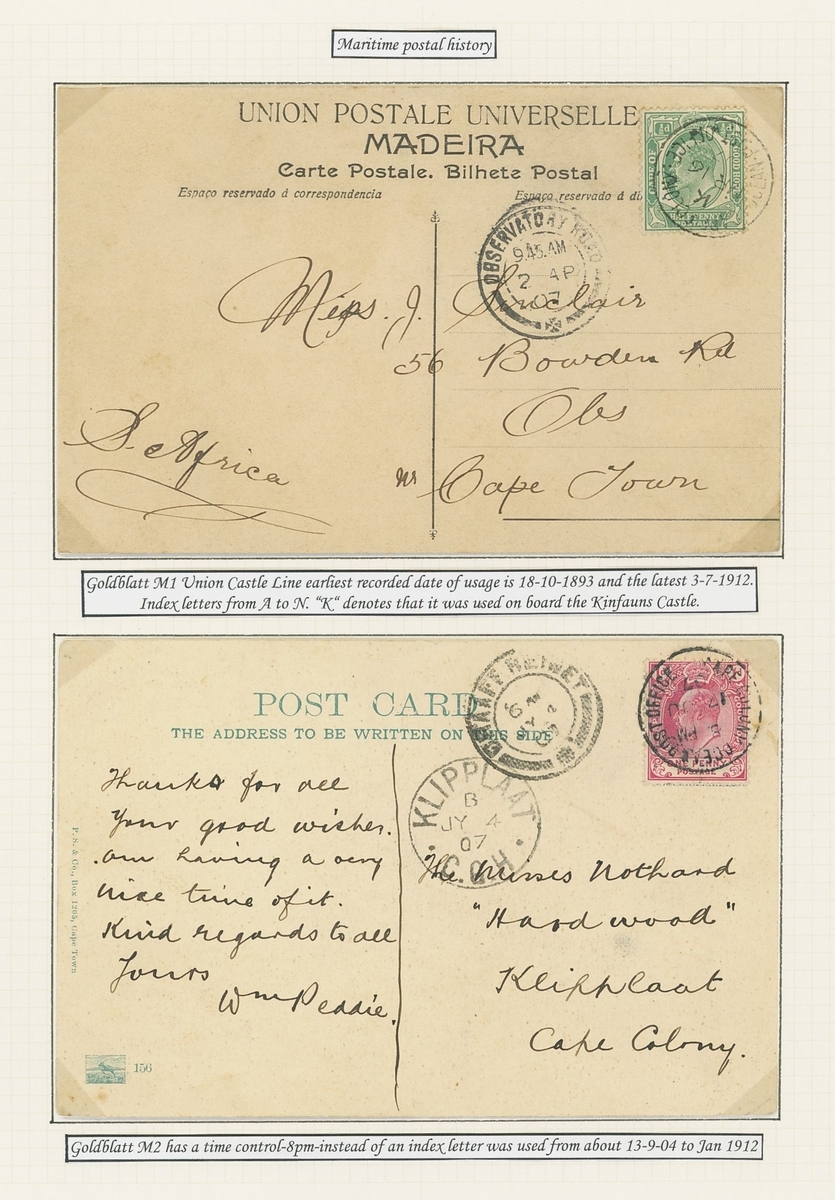 Maritime postal history
UNION POSTALE UNIVERSELLE
MADEIRA
Carte Postale. Bilhete Postal
Espaço reservado á correspondencia
Espaço reservado á di
OBSERVATORY ROAD
9.45.AM
2 AP
07
Miss. J. Sinclair
56 Bowden Rd
Obs
nr Cape Town
S. Africa
Goldblatt M1 Union Castle Line earliest recorded date of usage is 18-10-1893 and the latest 3-7-1912.
Index letters from A to N. "K" denotes that it was used on board the Kinfauns Castle.
POST CARD
THE ADDRESS TO BE WRITTEN ON THIS SIDE
GRAAFF REINET
OCEAN POST OFFICE CAPE COLONY
8
PM
ONE PENNY
POSTAGE
KLIPPLAAT
B
JY 4
07
C.G.H.
Thanks for all
your good wishes.
am having a very
nice time of it.
Kind regards to all
Yours
Wm Peddie.
The Misses Nothard
"Hardwood"
Klipplaat
Cape Colony.
P. S. & Co., Box 1295, Cape Town
156
Goldblatt M2 has a time control-8pm-instead of an index letter was used from about 13-9-04 to Jan 1912